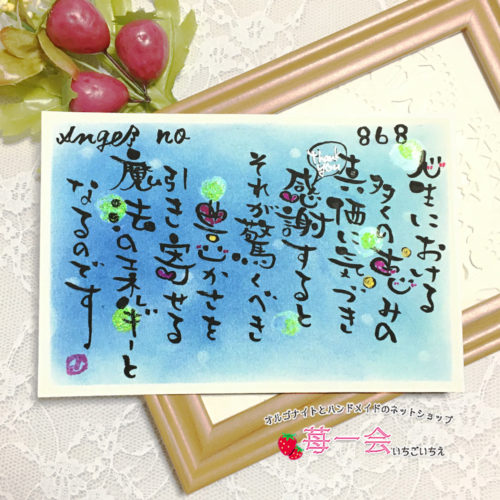 Angel no 868
人生における
多くの恵みの
真価に気づき
Thank you
感謝すると
それが驚くべき
豊かさを
引き寄せる
魔法のエネルギーと
なるのです
オルゴナイトとハンドメイドのネットショップ
苺一会 いちごいちえ